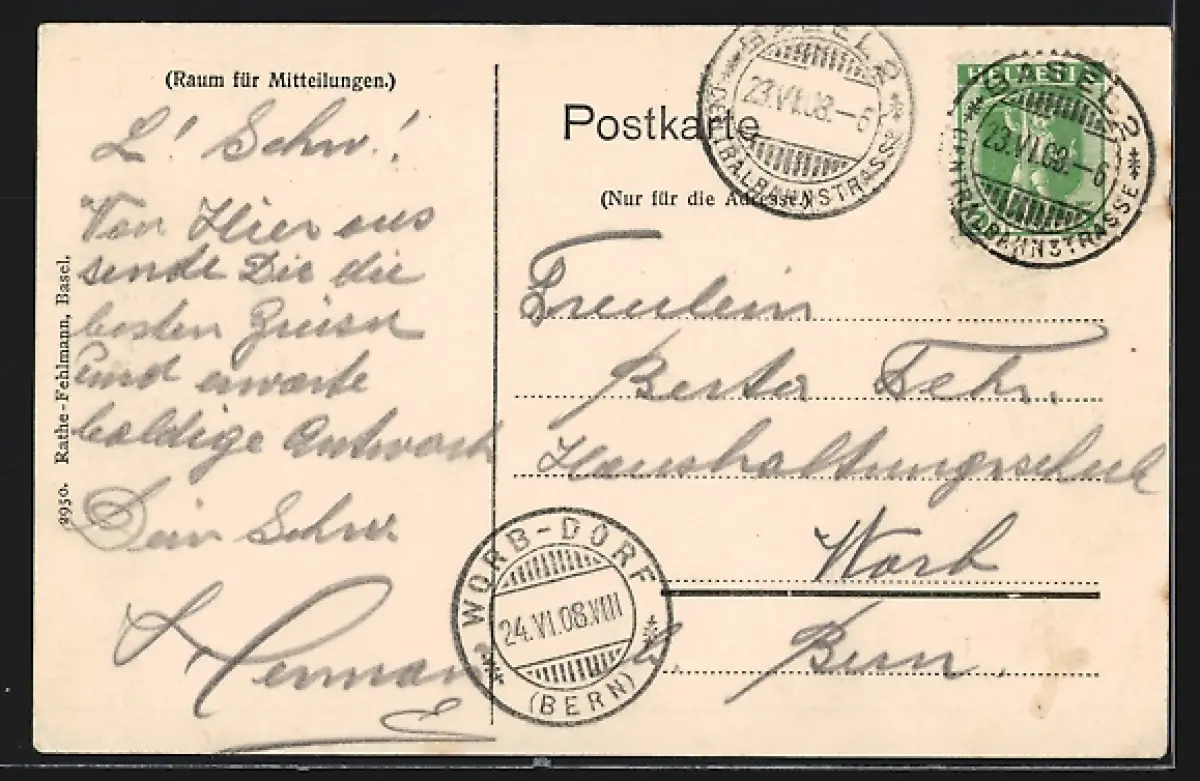 (Raum für Mitteilungen.)
L! Schw!
Von Hier aus
sende Dir die
besten Grüsse
und erwarte
baldige Antwort
Dein Schw.
Herman
2950. Rathe-Fehlmann, Basel.
Postkarte
(Nur für die Adresse.)
BASEL 2
23.VI.08.-6
CENTRALBAHNSTRASSE
HELVETIA
BASEL 2
23.VI.08.-6
CENTRALBAHNSTRASSE
Freulein
Berta Fehr.
Haushaltungsschule
Worb
b. Bern.
WORB-DORF
24.VI.08.VIII
(BERN)